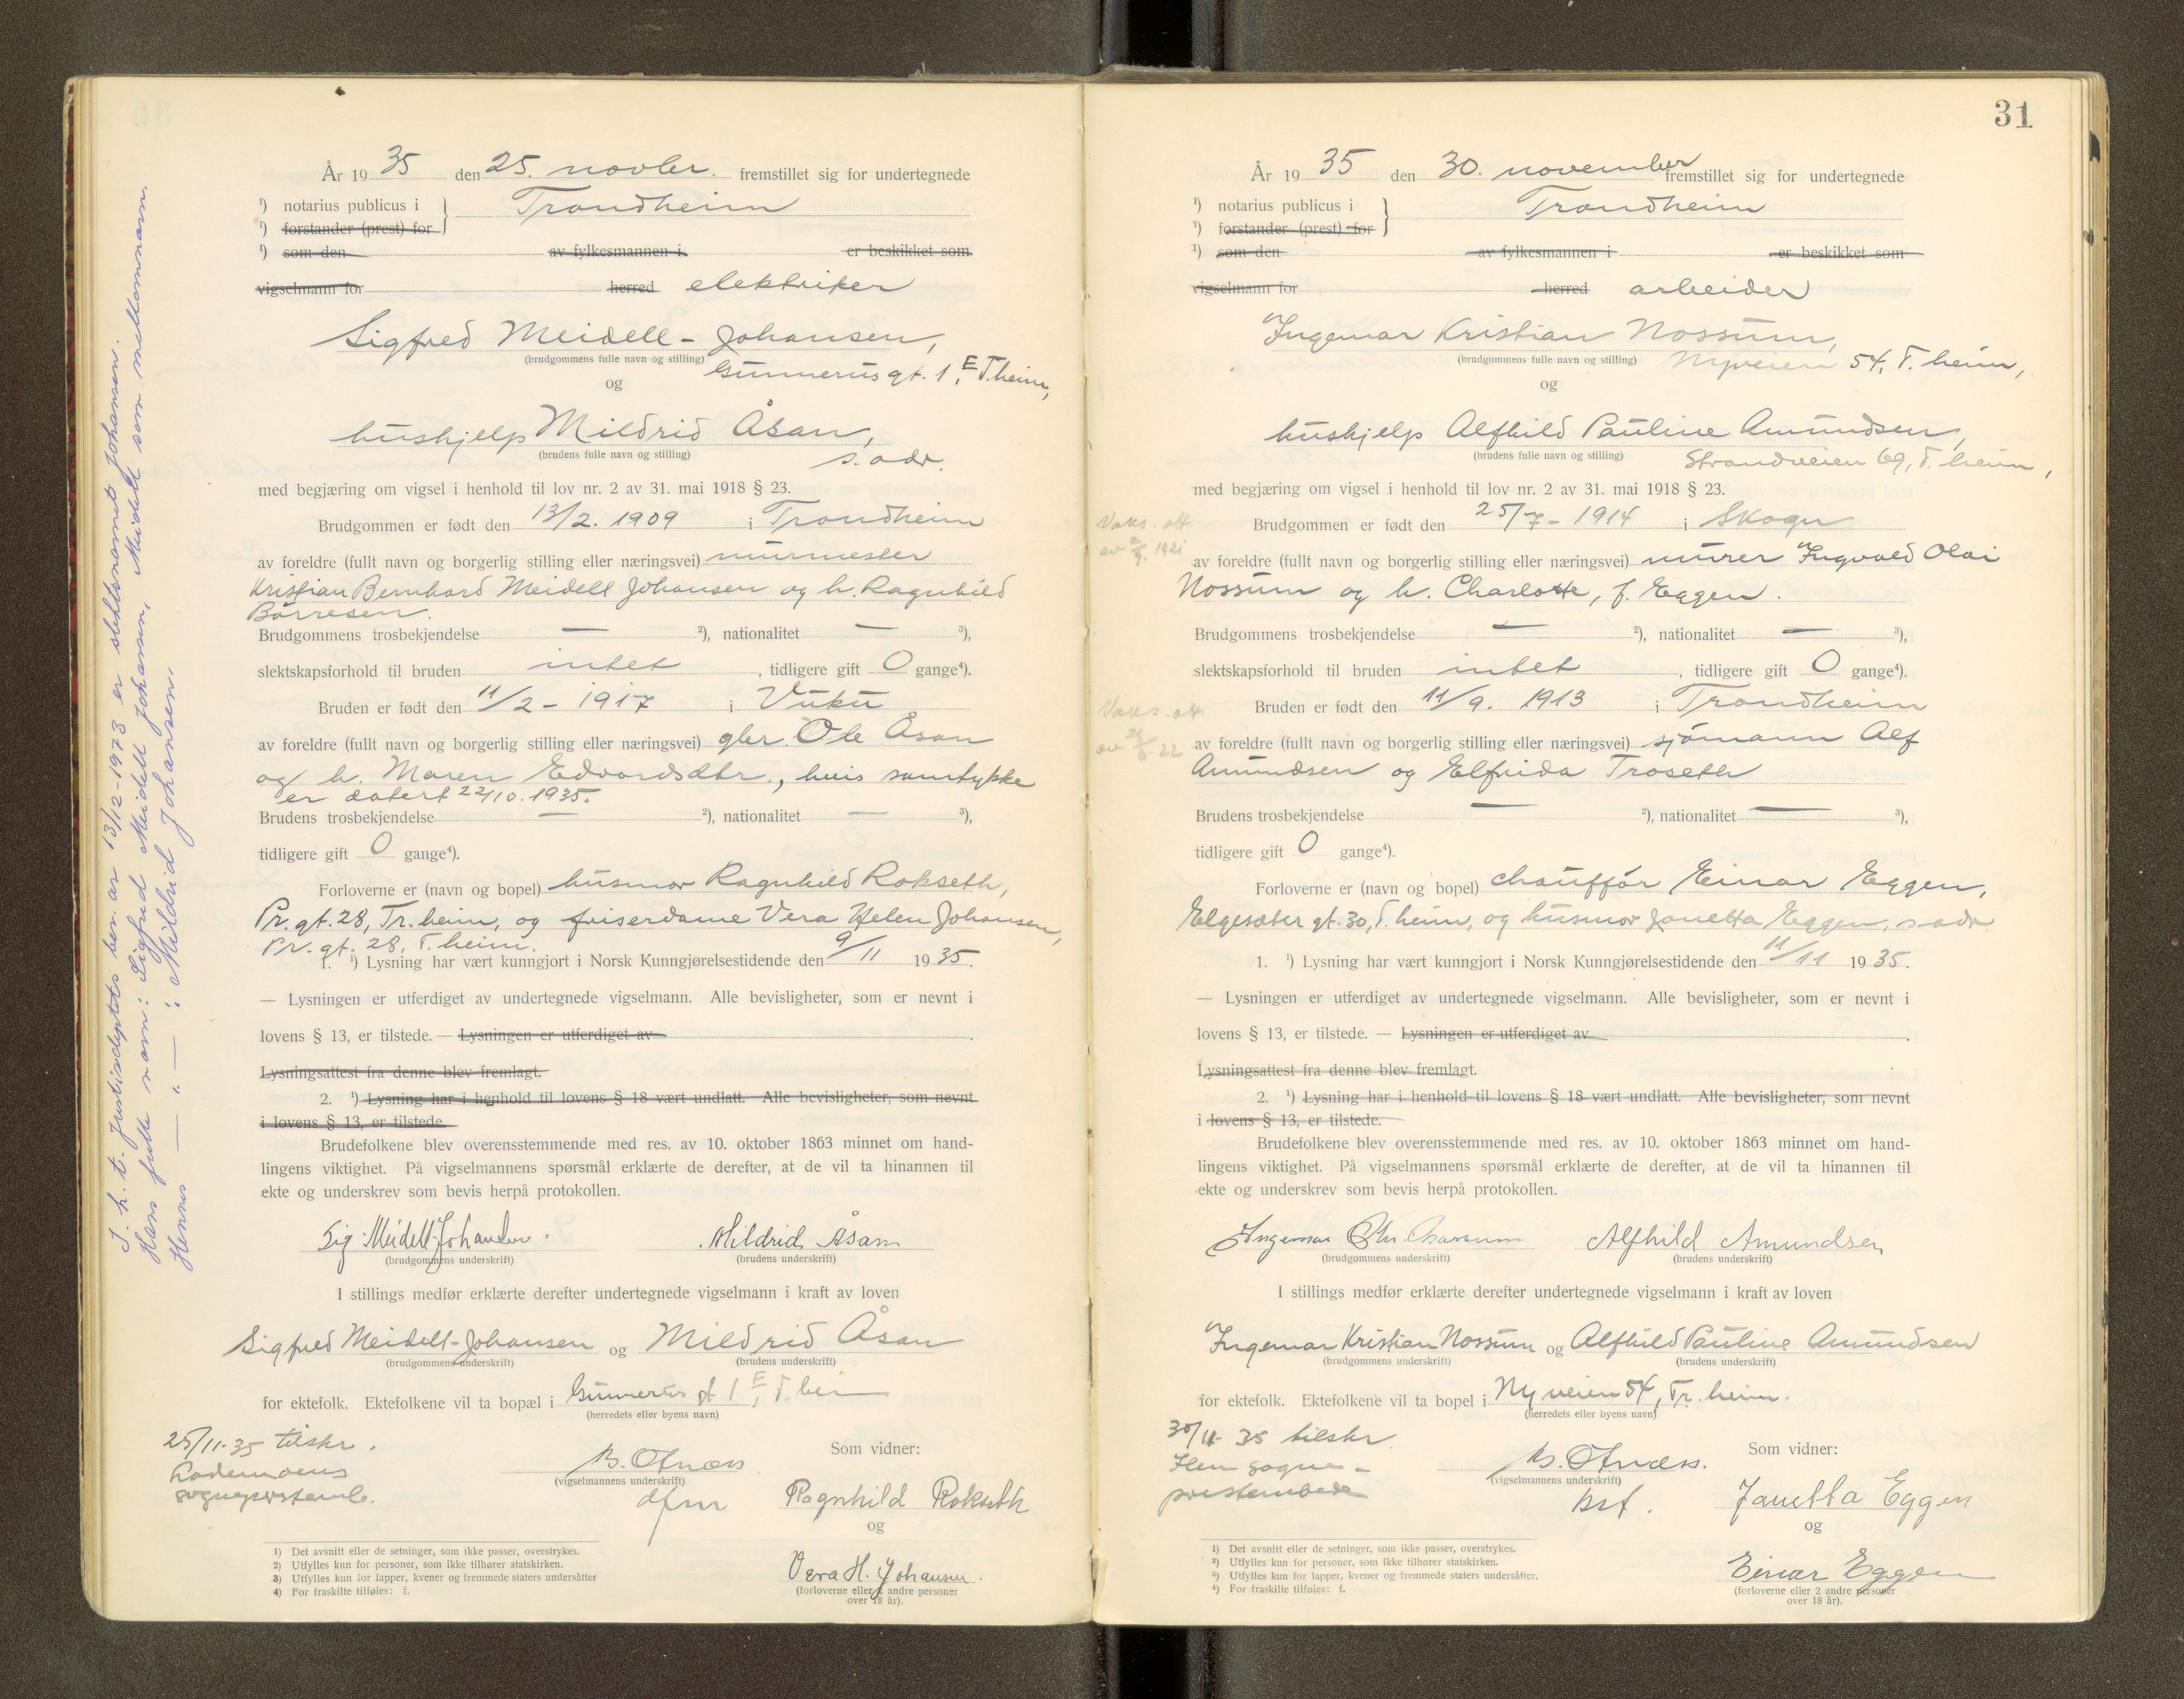 År 1935 den 25. novbr. fremstillet sig for undertegnede
¹) notarius publicus i
¹) forstander (prest) for } Trondheim
¹) som den av fylkesmannen i er beskikket som
vigselmann for herred elektriker
Sigfred Meidell-Johansen,
(brudgommens fulle navn og stilling) Gunnerusgt. 1E, T.heim,
og
hushjelp Mildrid Åsan,
(brudens fulle navn og stilling) s. adr.
med begjæring om vigsel i henhold til lov nr. 2 av 31. mai 1918 § 23.
Brudgommen er født den 13/2. 1909 i Trondheim
av foreldre (fullt navn og borgerlig stilling eller næringsvei) murmester
Kristian Bernhard Meidell Johansen og h. Ragnhild
Børresen.
Brudgommens trosbekjendelse — ²), nationalitet — ³),
slektskapsforhold til bruden intet, tidligere gift 0 gange⁴).
Bruden er født den 11/2 - 1917 i Vuku
av foreldre (fullt navn og borgerlig stilling eller næringsvei) gbr. Ole Åsan
og h. Maren Edvardsdtr., hvis samtykke
er datert 22/10. 1935.
Brudens trosbekjendelse — ²), nationalitet — ³),
tidligere gift 0 gange⁴).
Forloverne er (navn og bopel) husmor Ragnhild Rokseth,
Pr. gt. 28, Tr.heim, og friserdame Vera Helen Johansen,
Pr. gt. 28, T.heim.
1. ¹) Lysning har vært kunngjort i Norsk Kunngjørelsestidende den 9/11 1935.
— Lysningen er utferdiget av undertegnede vigselmann. Alle bevisligheter, som er nevnt i
lovens § 13, er tilstede. — Lysningen er utferdiget av .
Lysningsattest fra denne blev fremlagt.
2. ¹) Lysning har i henhold til lovens § 18 vært undlatt. Alle bevisligheter, som nevnt
i lovens § 13, er tilstede.
Brudefolkene blev overensstemmende med res. av 10. oktober 1863 minnet om hand-
lingens viktighet. På vigselmannens spørsmål erklærte de derefter, at de vil ta hinannen til
ekte og underskrev som bevis herpå protokollen.
Sig. Meidell Johansen. Mildrid Åsan
(brudgommens underskrift) (brudens underskrift)
I stillings medfør erklærte derefter undertegnede vigselmann i kraft av loven
Sigfred Meidell-Johansen og Mildrid Åsan
(brudgommens underskrift) (brudens underskrift)
for ektefolk. Ektefolkene vil ta bopæl i Gunnerus gt 1E, T.heim
(herredets eller byens navn)
25/11-35 tilskr.
Lademoens
sogneprestemb.
Som vidner:
B. Otnæss
(vigselmannens underskrift)
dfm
Ragnhild Rokseth
og
Vera H. Johansen.
(forloverne eller 2 andre personer
over 18 år).
1) Det avsnitt eller de setninger, som ikke passer, overstrykes.
2) Utfylles kun for personer, som ikke tilhører statskirken.
3) Utfylles kun for lapper, kvener og fremmede staters undersåtter
4) For fraskilte tilføies: f.
I h. t. Justisdeptets brev av 13/12-1973 er slektsnavnet Johansen.
Hans fulle navn: Sigfred Meidell Johansen, Meidell som mellomnavn.
Hennes — " — : Mildrid Johansen.
31
År 1935 den 30. november fremstillet sig for undertegnede
¹) notarius publicus i
¹) forstander (prest) for } Trondheim
¹) som den av fylkesmannen i er beskikket som
vigselmann for herred arbeider
Ingemar Kristian Nossum,
(brudgommens fulle navn og stilling) Nyveien 54, T.heim,
og
hushjelp Alfhild Pauline Amundsen,
(brudens fulle navn og stilling) Strandveien 69, T.heim,
med begjæring om vigsel i henhold til lov nr. 2 av 31. mai 1918 § 23.
Vaks. att.
av 2/9. 1921
Brudgommen er født den 25/7 - 1914 i Skogn
av foreldre (fullt navn og borgerlig stilling eller næringsvei) murer Ingvald Olai
Nossum og h. Charlotte, f. Eggen.
Brudgommens trosbekjendelse — ²), nationalitet — ³),
slektskapsforhold til bruden intet, tidligere gift 0 gange⁴).
Vaks. att.
Bruden er født den 11/9. 1913 i Trondheim
av foreldre (fullt navn og borgerlig stilling eller næringsvei) sjømann Alf
Amundsen og Elfrida Troseth
Brudens trosbekjendelse — ²), nationalitet — ³),
tidligere gift 0 gange⁴).
Forloverne er (navn og bopel) chauffør Einar Eggen,
Elgesæter gt. 30, T.heim, og husmor Janetta Eggen, s. adr.
1. ¹) Lysning har vært kunngjort i Norsk Kunngjørelsestidende den 11/11 1935.
— Lysningen er utferdiget av undertegnede vigselmann. Alle bevisligheter, som er nevnt i
lovens § 13, er tilstede. — Lysningen er utferdiget av .
Lysningsattest fra denne blev fremlagt.
2. ¹) Lysning har i henhold til lovens § 18 vært undlatt. Alle bevisligheter, som nevnt
i lovens § 13, er tilstede.
Brudefolkene blev overensstemmende med res. av 10. oktober 1863 minnet om hand-
lingens viktighet. På vigselmannens spørsmål erklærte de derefter, at de vil ta hinannen til
ekte og underskrev som bevis herpå protokollen.
Ingemar Chr. Nossum Alfhild Amundsen
(brudgommens underskrift) (brudens underskrift)
I stillings medfør erklærte derefter undertegnede vigselmann i kraft av loven
Ingemar Kristian Nossum og Alfhild Pauline Amundsen
(brudgommens underskrift) (brudens underskrift)
for ektefolk. Ektefolkene vil ta bopel i Nyveien 54, Tr.heim.
(herredets eller byens navn)
30/11-35 tilskr.
Ilen sogne-
prestembede
Som vidner:
B. Otnæss.
(vigselmannens underskrift)
bst.
Janetta Eggen
og
Einar Eggen
(forloverne eller 2 andre personer
over 18 år).
1) Det avsnitt eller de setninger, som ikke passer, overstrykes.
2) Utfylles kun for personer, som ikke tilhører statskirken.
3) Utfylles kun for lapper, kvener og fremmede staters undersåtter.
4) For fraskilte tilføies: f.